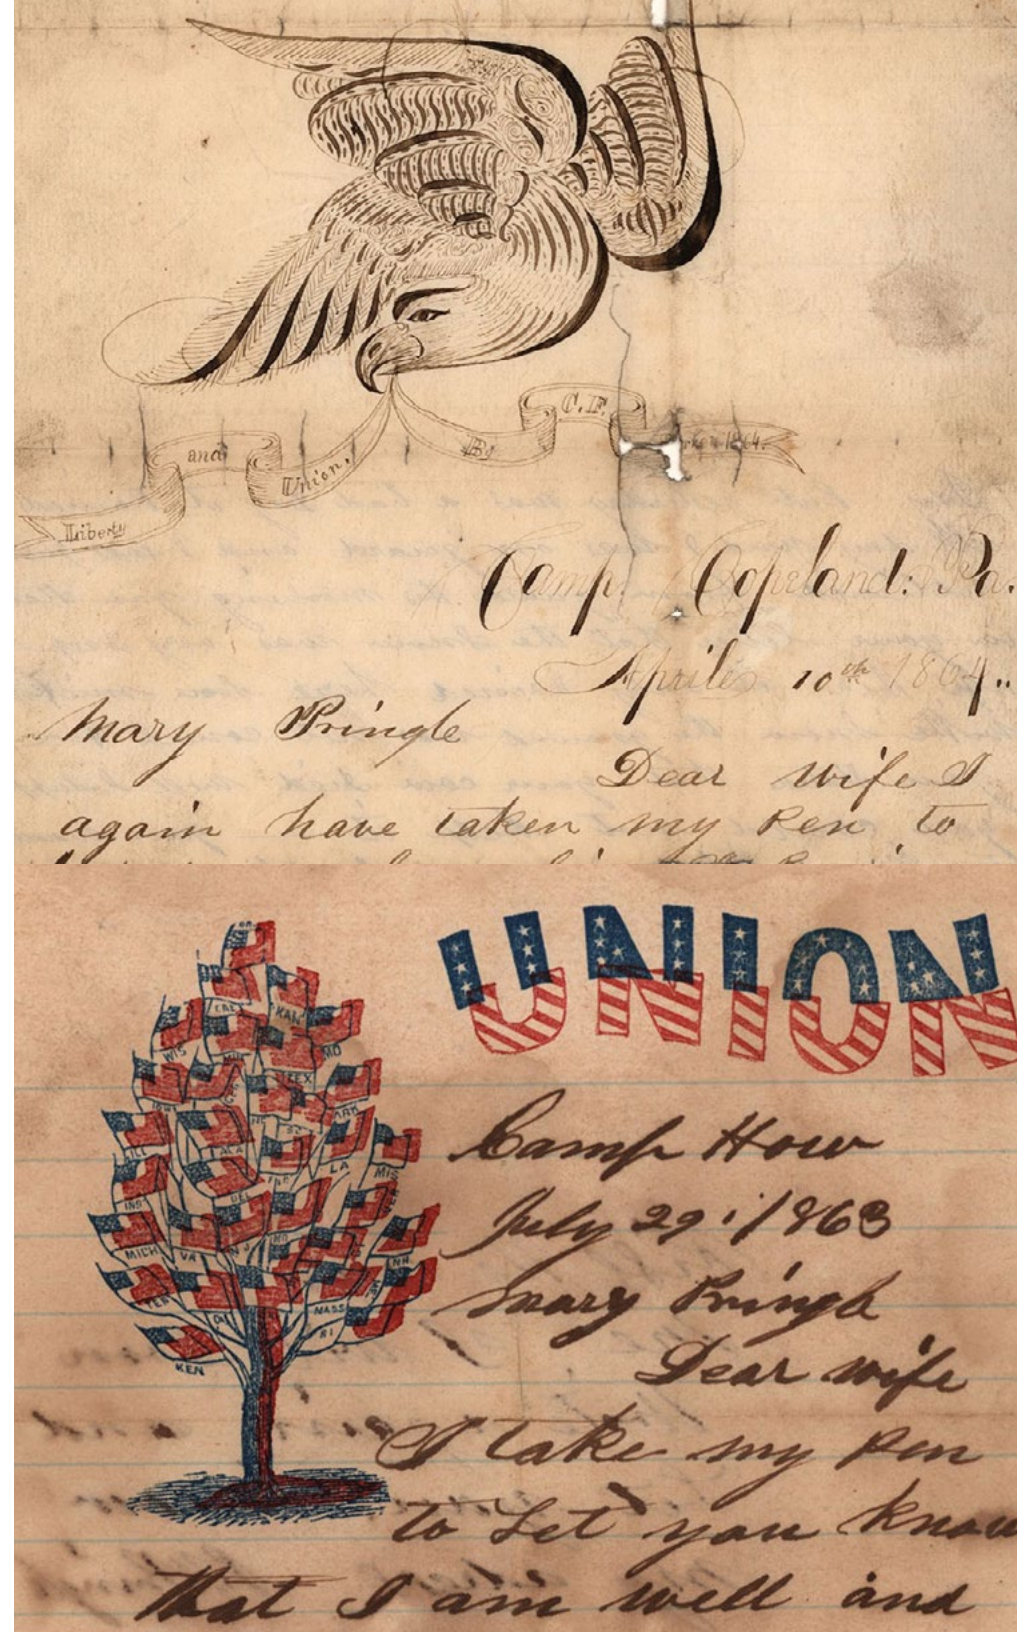 Liberty
and
Union,
By
C.F.
1864.
Camp Copeland: Pa.
Aprile 10th 1864..
Mary Pringle
Dear wife I
again have taken my Pen to
UNION
OR
CAL
KAN
WIS
MO
TEX
ARK
ILL
ALA
LA
MIS
IND
DEL
MICH
VA
N J
NH
MASS
RI
KEN
Camp How
July 29 1863
Mary Pringle
Dear wife
I take my Pen
to Let you know
that I am well and